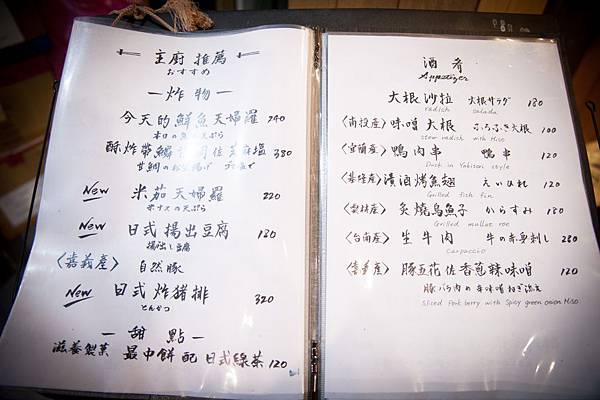 主廚 推薦
おすすめ
一 炸 物 一
今天的鮮魚天婦羅 240
本日の魚の天ぷら
酥炸帶鱗 佐芝麻塩 380
甘鯛の
New 米茄天婦羅 220
米ナスの天ぷら
New 日式 揚出豆腐 180
揚出し豆腐
〈嘉義産〉 自然豚
New 日式 炸猪排 320
とんかつ
一 甜 點 一
滋養製菓 最中餅 配 日式綠茶 120
酒 肴
Appetizer
大根 沙拉 大根サラダ 180
radich salada
〈南投産〉 味噌 大根 ふろふき大根 100
stew radish with Miso
〈宜蘭産〉 鴨肉串 鴨串 120
Duck in Yakitori style
〈基隆産〉 漬酒烤魚翅 えいひれ 120
Grilled fish fin
〈雲林産〉 炙燒烏魚子 からすみ 180
Grilled mullet roe
〈台南産〉 生 牛 肉 牛の赤身刺し 280
Carpaccio
豚五花 佐 香蔥辣味噌 120
豚バラ肉の 辛味噌
Sliced Pork berry with Spicy green onion Miso